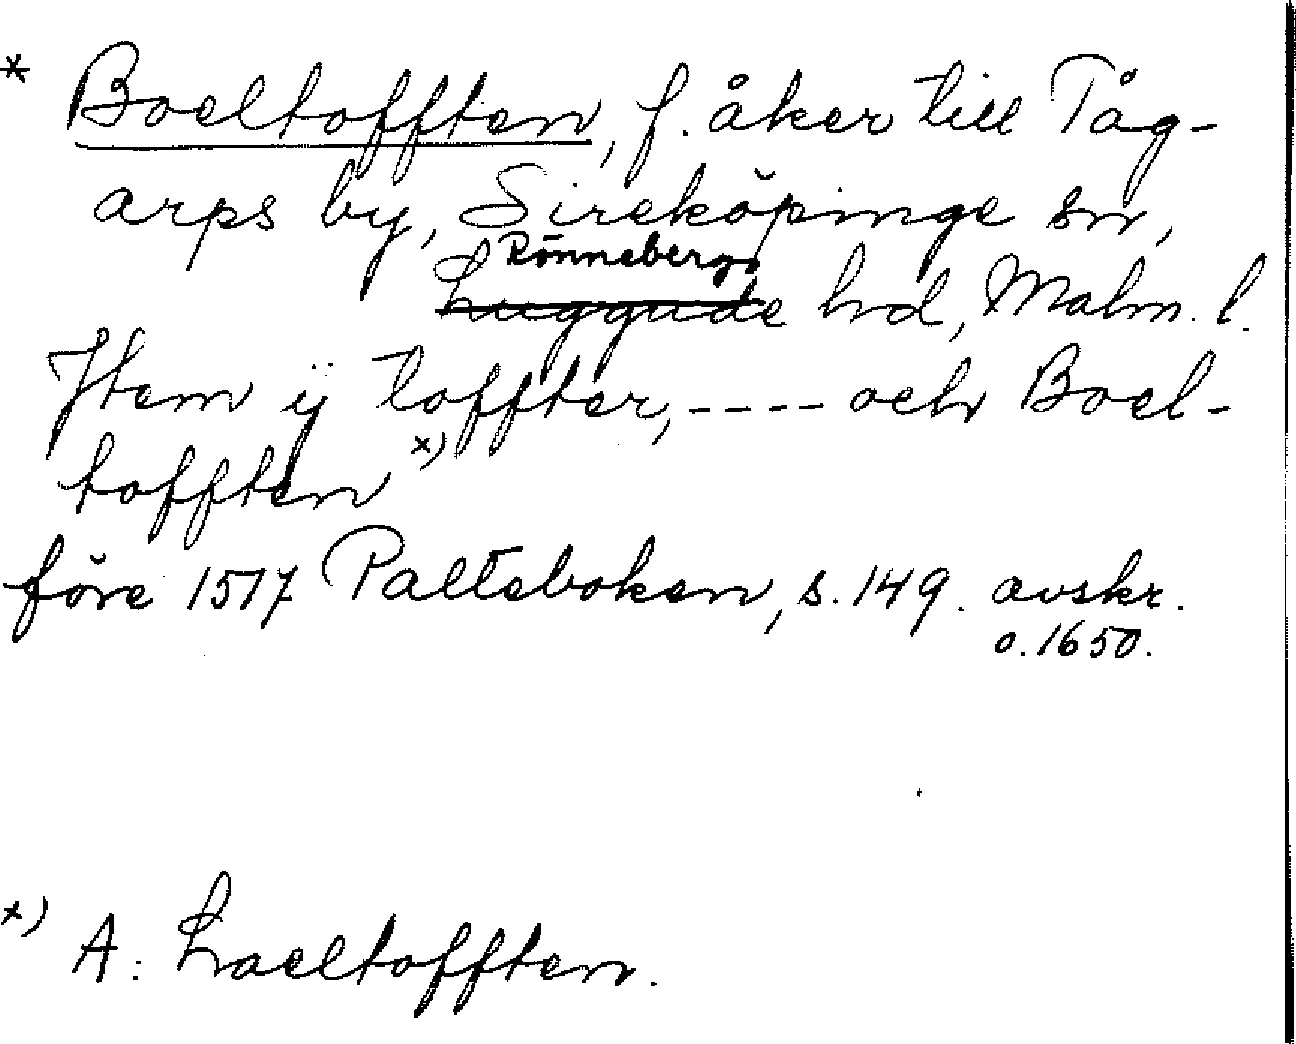 * Boeltofften, f. åker till Tåg-
arps by, Sireköpinge sn,
Rönnebergs
Luggude hd, Malm. l.
Item ij toffter, ---- och Boel-
tofften x)
före 1517 Palteboken, s. 149. avskr.
o. 1650.
x) A: Loeltofften.